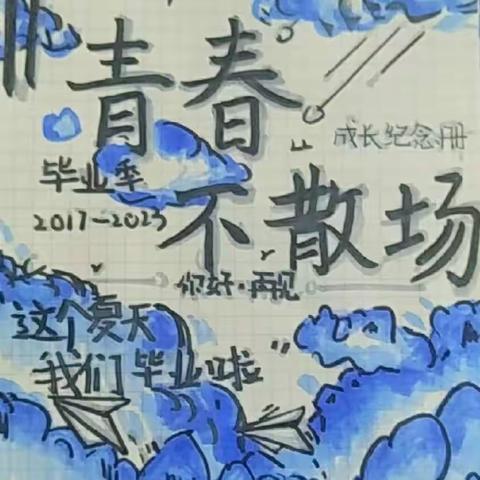 青春
成长纪念册
毕业季
不散场
2017-2023
你好·再见
这个夏天
我们毕业啦